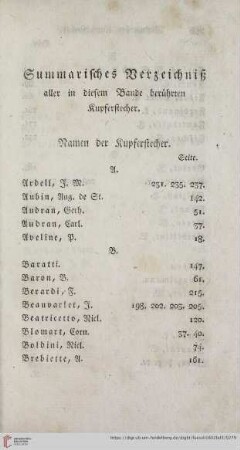 Summarisches Verzeichniß
aller in diesem Bande berührten
Kupferstecher.
Namen der Kupferstecher.
Seite.
A.
Ardell, J. M. 231. 235. 237.
Aubin, Aug. de St. 142.
Audran, Gerh. 51.
Audran, Carl. 57.
Aveline, P. 18.
B.
Baratti. 147.
Baron, B. 61.
Berardi, F. 215.
Beauvarlet, J. 198. 202. 203. 205.
Beatricetto, Nicl. 120.
Blomart, Corn. 37. 40.
Boldini, Nicl. 74.
Brebiette, A. 161.
UNIVERSITÄTS-
BIBLIOTHEK
HEIDELBERG